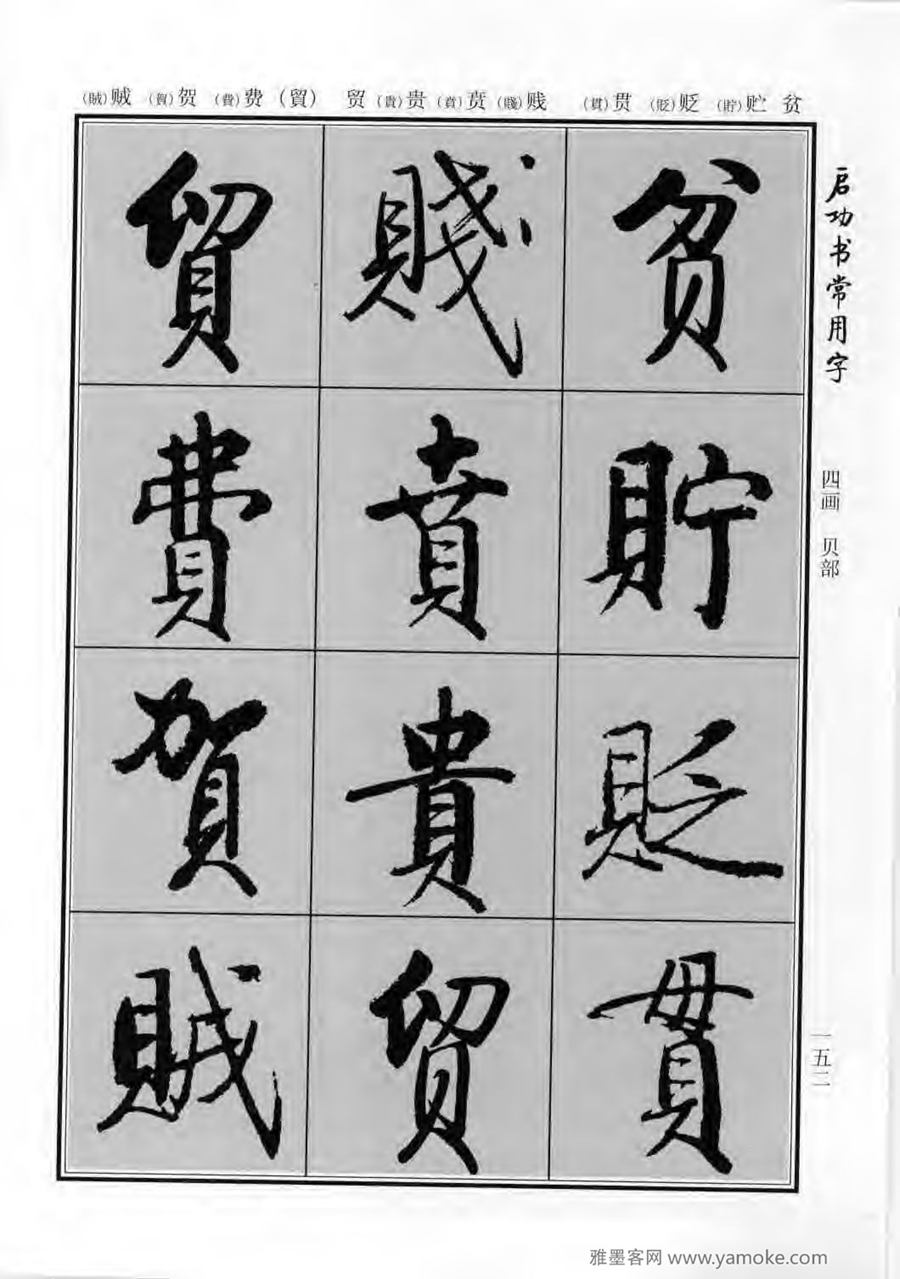 贫 贮(貯) 贬(貶) 贯(貫) 贱(賤) 贲(賁) 贵(貴) 贸 (貿) 费(費) 贺(賀) 贼(賊)
启功书常用字
四画 贝部
一五二
贫貯貶貫
賤賁貴贸
貿費賀賊
雅墨客网 www.yamoke.com